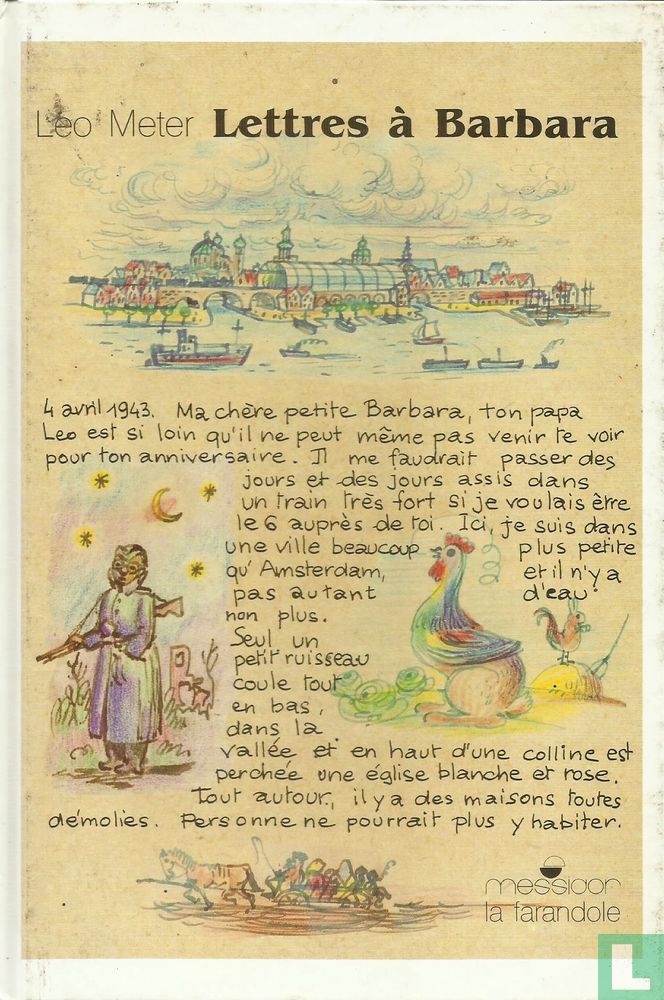 Leo Meter Lettres à Barbara
4 avril 1943. Ma chère petite Barbara, ton papa
Leo est si loin qu'il ne peut même pas venir te voir
pour ton anniversaire. Il me faudrait passer des
jours et des jours assis dans
un train très fort si je voulais être
le 6 auprès de toi. Ici, je suis dans
une ville beaucoup plus petite
qu'Amsterdam, et il n'y a
pas autant d'eau
non plus.
Seul un
petit ruisseau
coule tout
en bas,
dans la
vallée et en haut d'une colline est
perchée une église blanche et rose.
Tout autour, il y a des maisons toutes
démolies. Personne ne pourrait plus y habiter.
messidor
la farandole
L